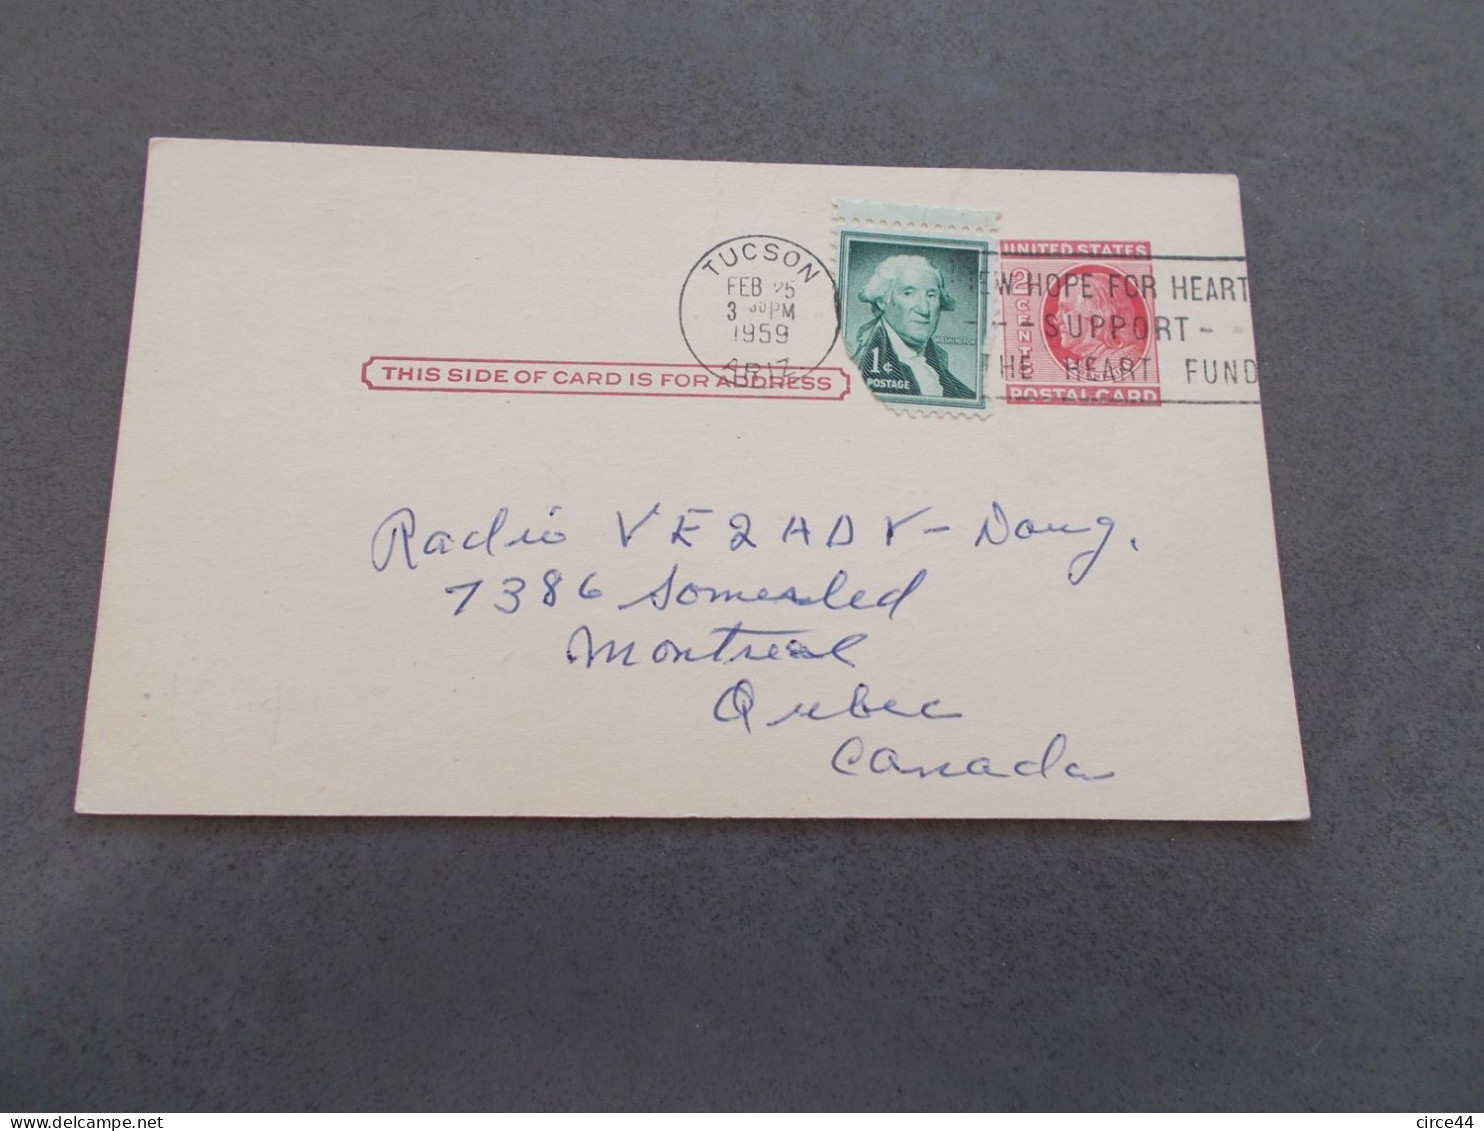 TUCSON
FEB 25
3 30 PM
1959
ARIZ
WASHINGTON
1¢
POSTAGE
UNITED STATES
2 CENTS
POSTAL CARD
NEW HOPE FOR HEART
- - - SUPPORT - -
THE HEART FUND
THIS SIDE OF CARD IS FOR ADDRESS
Radio VE2ADY - Doug.
7386 Somerled
Montreal
Quebec
Canada
delcampe.net
circe44